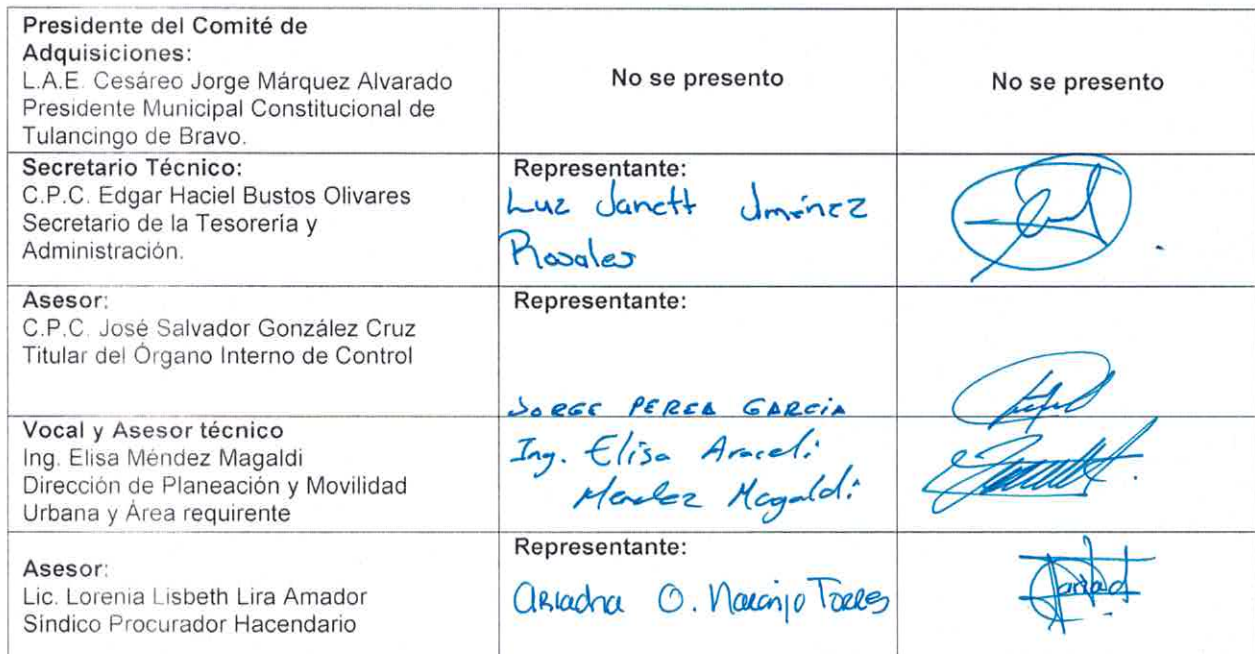 Presidente del Comité de
Adquisiciones:
L.A.E. Cesáreo Jorge Márquez Alvarado
Presidente Municipal Constitucional de
Tulancingo de Bravo.
No se presento
No se presento
Secretario Técnico:
C.P.C. Edgar Haciel Bustos Olivares
Secretario de la Tesorería y
Administración.
Representante:
Luz Janett Jménez
Rosales
Asesor:
C.P.C. José Salvador González Cruz
Titular del Órgano Interno de Control
Representante:
JORGE PEREA GARCÍA
Vocal y Asesor técnico
Ing. Elisa Méndez Magaldi
Dirección de Planeación y Movilidad
Urbana y Área requirente
Ing. Elisa Araceli
Mendez Magaldi
Asesor:
Lic. Lorenia Lisbeth Lira Amador
Síndico Procurador Hacendario
Representante:
Ariadna O. Naranjo Torres